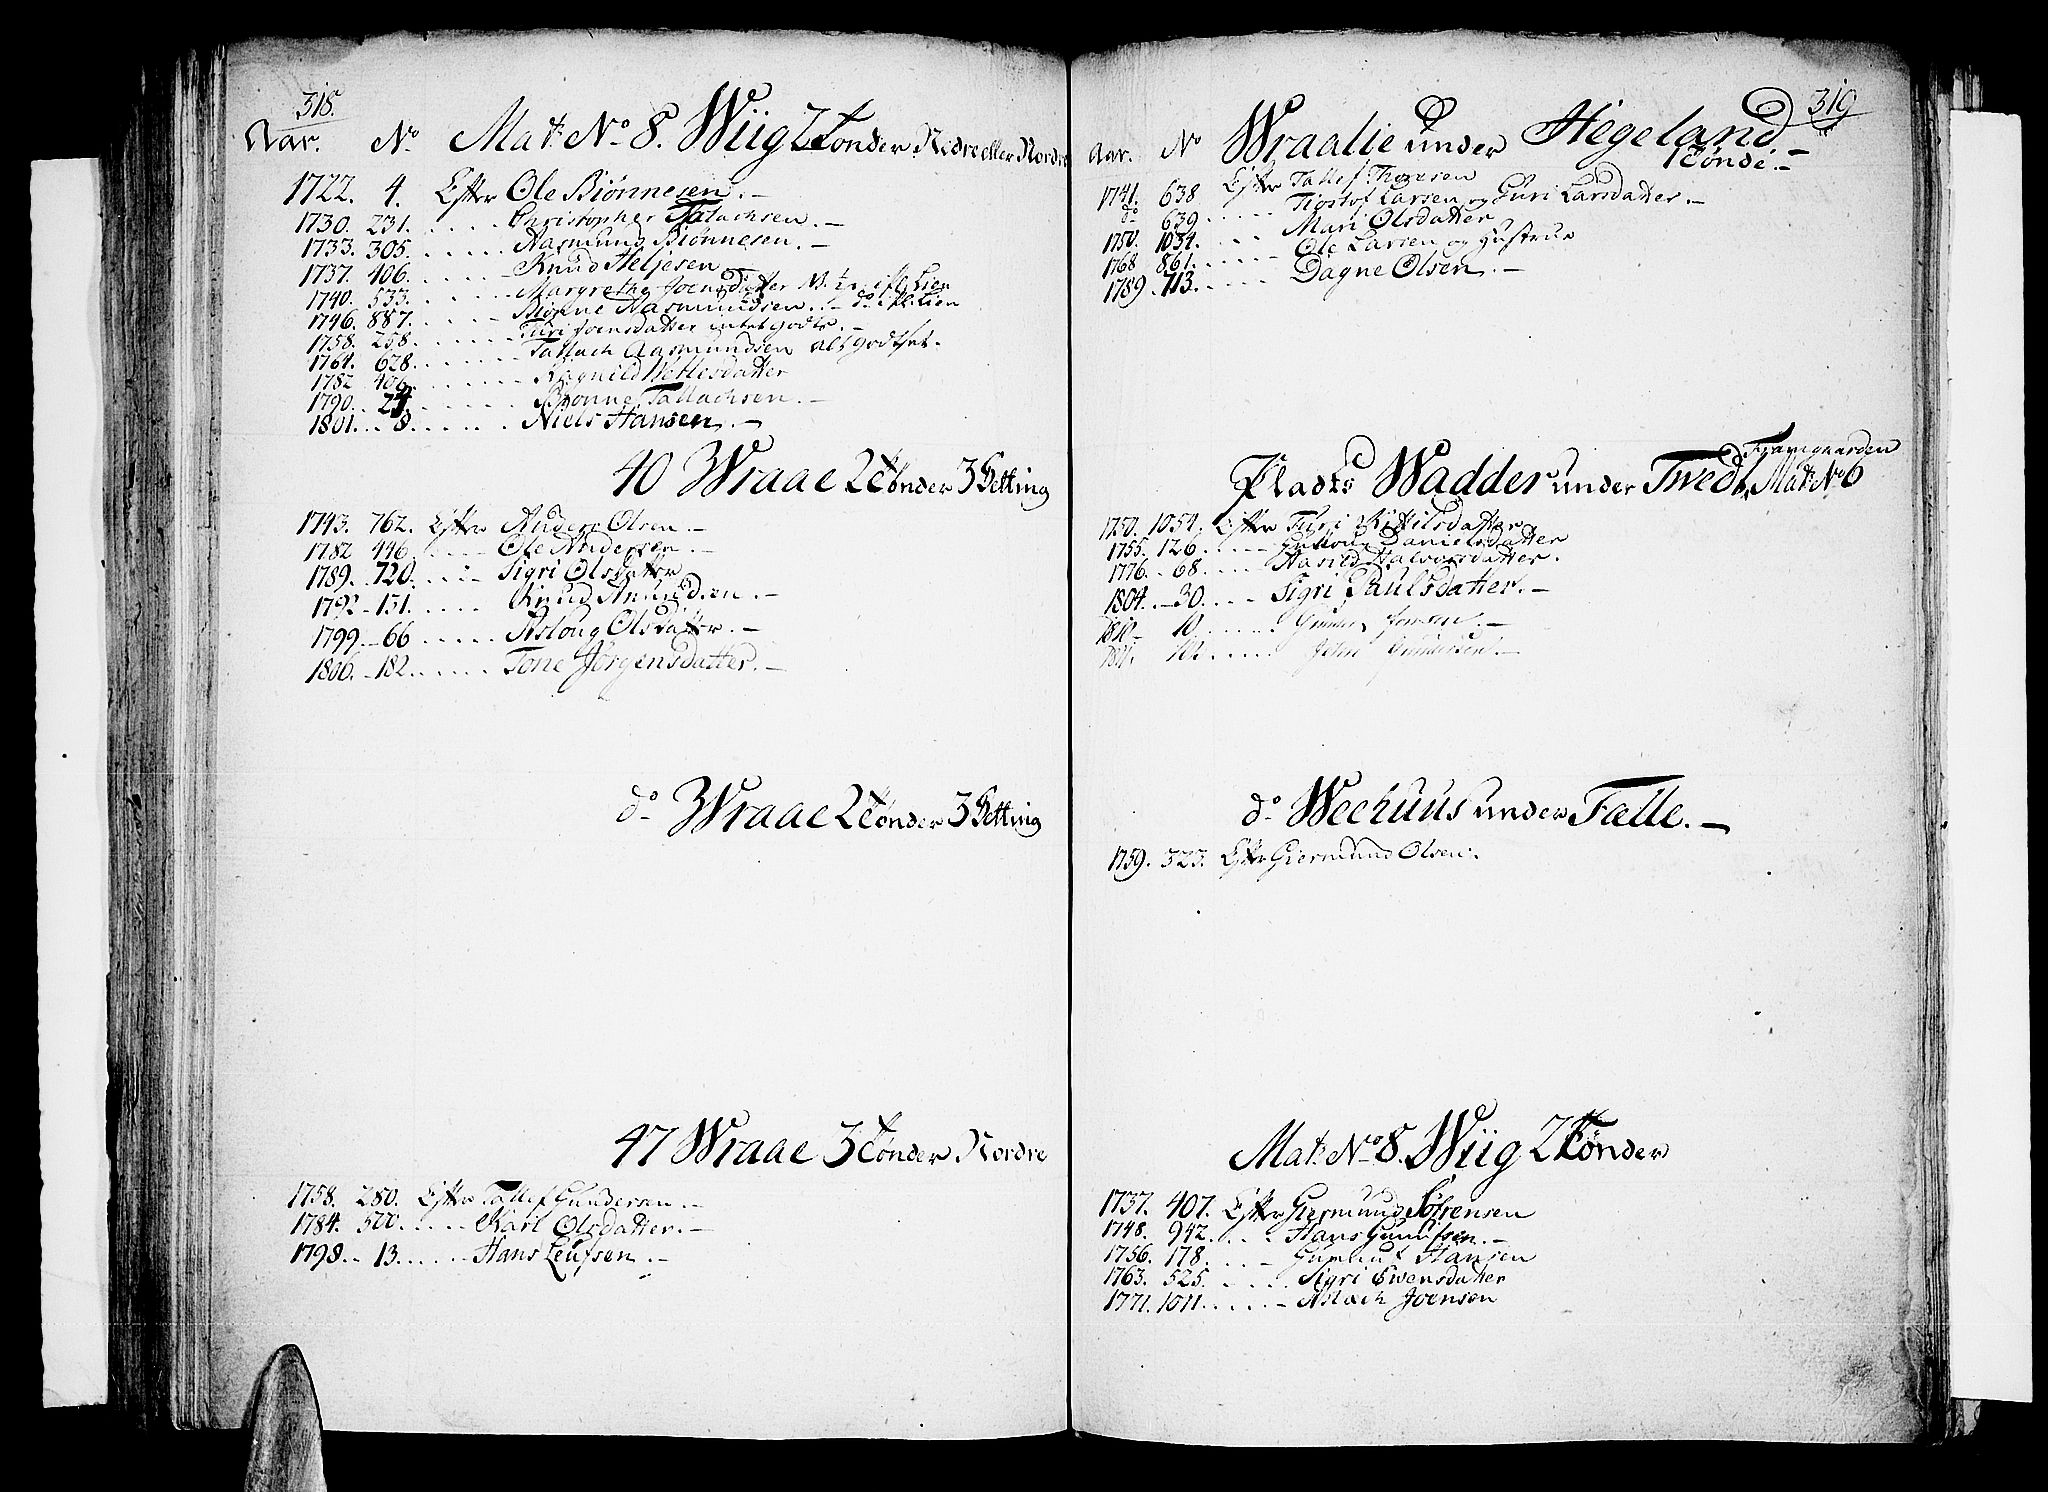 318.
Aar. No Mat: No 8. Wiig 2 Tønder Nedre eller Nordre
1722. 4. Efter Ole Biønnesen. –
1730. 231. ..... Christopher Talachsen. –
1733. 305. ..... Aasmund Biønnesen. –
1737. 406. ..... Knud Heljesen
1740. 533. ..... Margrethe Joensdatter
1746. 887. ..... Biønne Aasmundsen
1758. 258. ..... Turi Joensdatter intet godtz. –
1764. 628. ..... Tallach Aasmundsen
1782 406. ..... Ragnild
1790. 24. ..... Biønne Tallachsen. –
1801. .. 8. ..... Niels Hansen. –
40 Wraae 2 Tønder 3 Setting
1743. 762. Efter Anders Olsen. –
1782 446. ..... Ole Andersen. –
1789. 720. ..... Sigri Olsdatter
1792 – 151. ..... Knud Amundsen. –
1799. – 66 ..... Asloug Olsdatter. –
1806. – 182. ..... Tone Jørgensdatter. –
do Wraae 2 Tønder 3 Setting
47 Wraae 3 Tønder Nordre
1758. 280. Efter Tallef Gundersen. –
1784. 500. ..... Kari Olsdatter. –
1798. – 13. ..... Hans Leufsen. –
319
Aar. No Wraalie under Hegeland
1 Tønde. –
1741. 638 Efter Tallef Thoresen
do 639. ..... Tiostof Larsen og Guri Larsdatter. –
1750. 1034. ..... Mari Olsdatter
1768 861. ..... Ole Larsen og Hustrue
1789. 713. ..... Dagne Olsen. –
Plads Wadder under Twedt, Mat: No 6
1750. 1054. Efter Turi Kittilsdatter
1755. 126. ..... Danielsdatter
1776. – 68. ..... Halvorsdatter.
1804. – 30. ..... Sigri Paulsdatter. –
1810 – 10. .....
102. ..... Gundersen. –
do Weehuus under Fælle. –
1759. 323. Efter Giermund Olsen.
Mat: No 8. Wiig 2 Tønder
1737. 407. Efter Giermund Sørensen
1748. 942. ..... Hans Gunufsen. –
1756. 178. ..... Hansen
1763. 525. ..... Sigri Swensdatter
1771. 1011. ..... Aslach Joensen